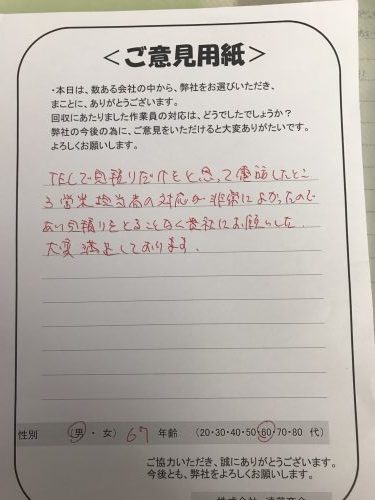 ＜ご意見用紙＞
・本日は、数ある会社の中から、弊社をお選びいただき、
まことに、ありがとうございます。
回収にあたりました作業員の対応は、どうでしたでしょうか？
弊社の今後の為に、ご意見をいただけると大変ありがたいです。
よろしくお願いします。
TELで見積りだけをと思って電話したとこ
ろ営業担当者の対応が非常によかったので
あい見積りをとることなく貴社にお願いした.
大変満足しております.
性別 （男・女） 67 年齢 （20・30・40・50・60・70・80 代）
ご協力いただき、誠にありがとうございます。
今後とも、弊社をよろしくお願いします。